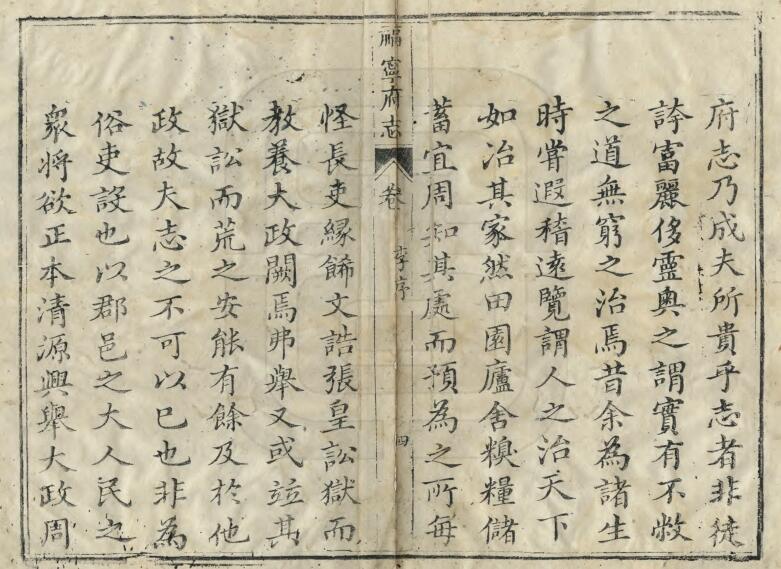 府志乃成夫所貴乎志者非徒
誇富麗侈靈奧之謂實有不敝
之道無窮之治焉昔余為諸生
時嘗遐稽遠覽謂人之治天下
如治其家然田園廬舍糗糧儲
蓄宜周知其處而預為之所每
福寧府志 卷 李序 四
怪長吏緣餙文誥張皇訟獄而
教養大政闕焉弗舉又或竝其
獄訟而荒之安能有餘及於他
政故夫志之不可以已也非為
俗吏設也以郡邑之大人民之
眾將欲正本清源興舉大政周